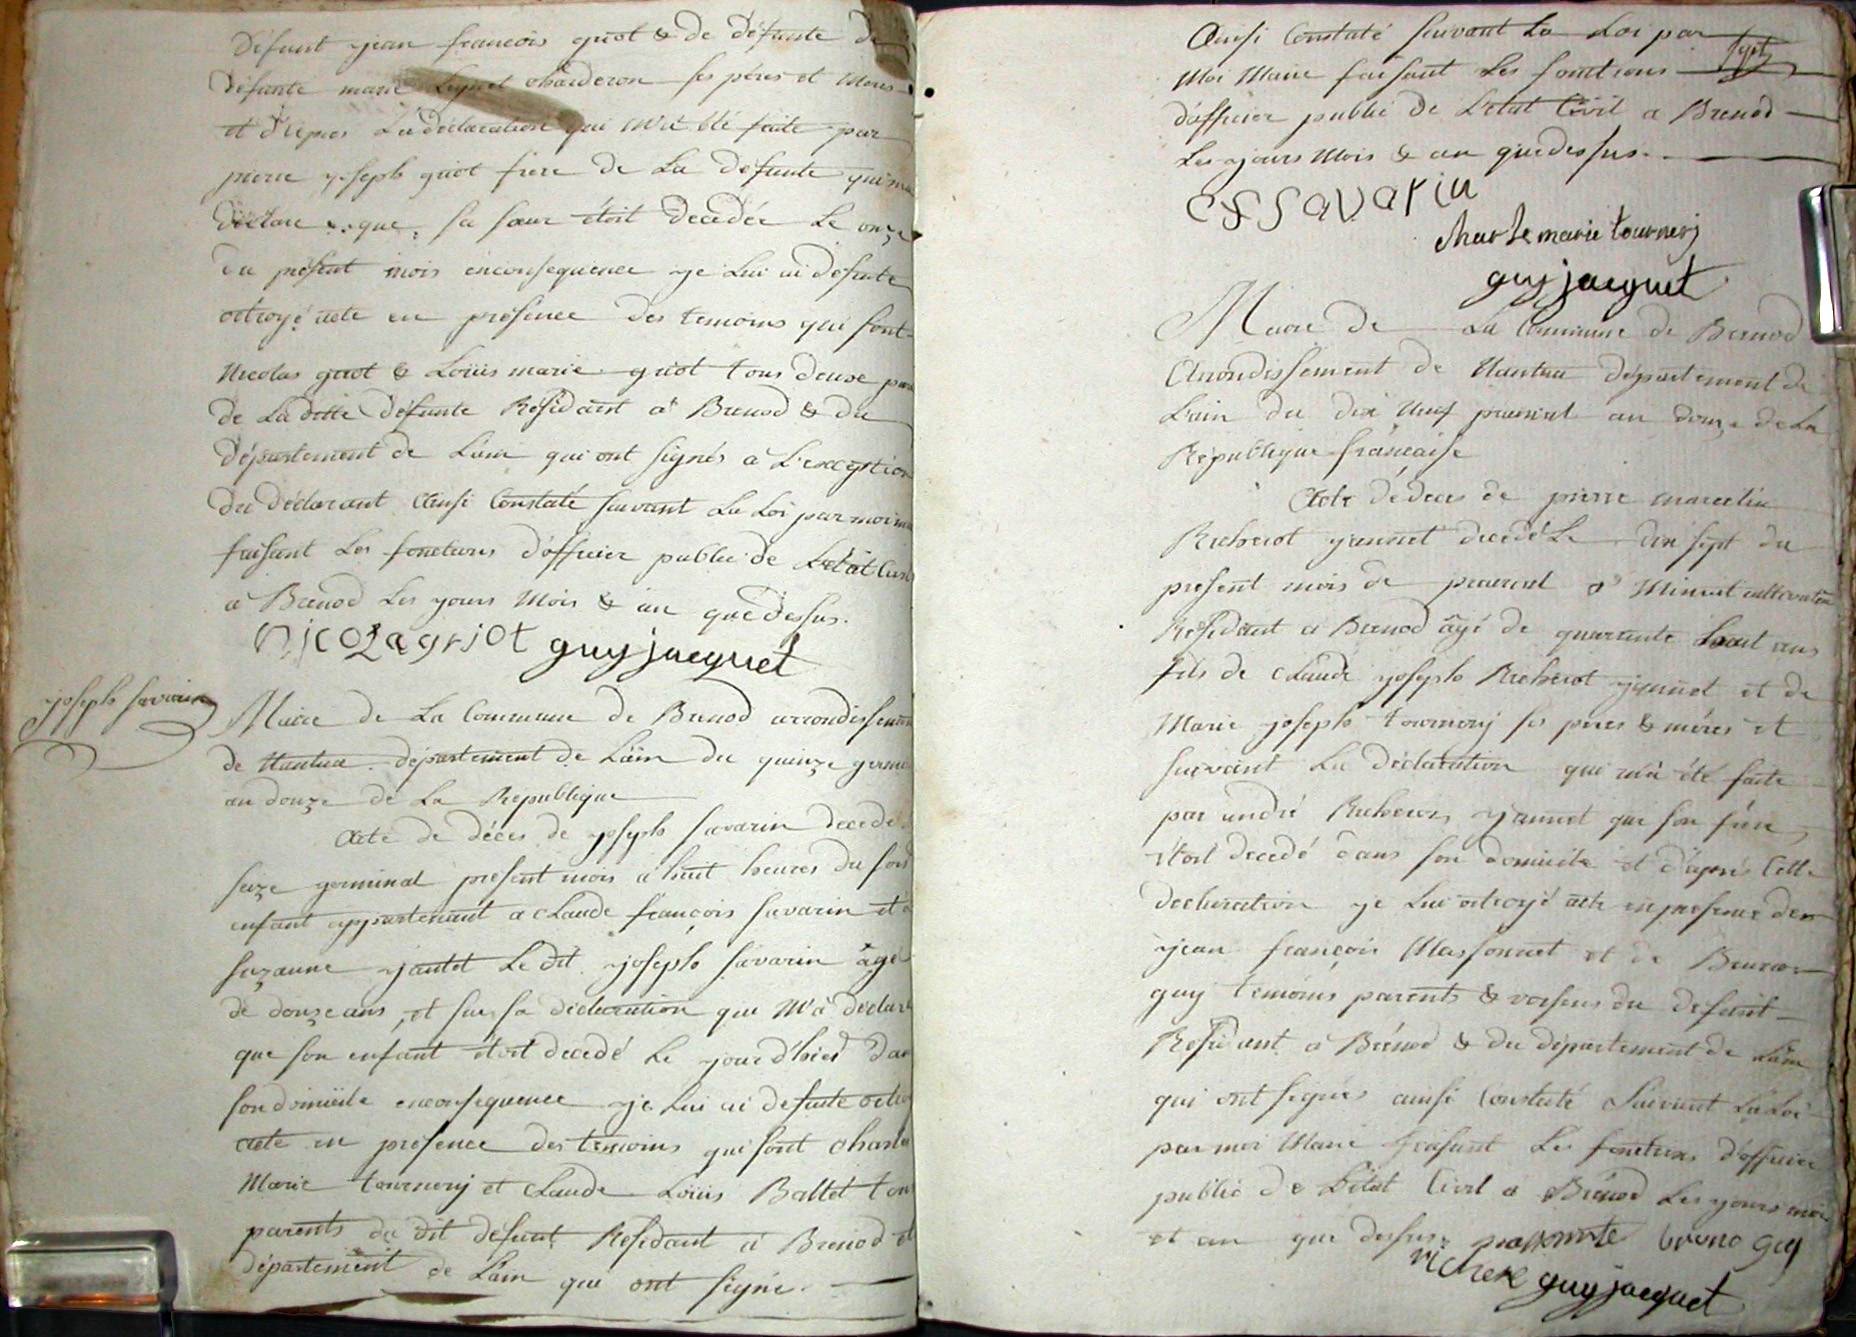 Défunt jean francois griot & de défunte
défunte marie chaderon ses péres et Meres
et d'apres La déclaration qui m'a été faite par
pierre joseph griot frere de La défunte qui m'a
déclare que sa sœur étoit decedée Le onze
du présent mois enconsequence je Lui ai desuite
octroyé acte en présence des temoins qui sont
Nicolas griot & Loüis marie griot tous deux
de La ditte défunte Résidant a Brenod & du
département de L'ain qui ont signés a L'exception
du déclarant Ainsi Constaté suivant La Loi par moi
faisant Les fonctions d'officier public de L'état Civil
a Brenod Les jours Mois & an que dessus.
Nicola griot guy jacquet
joseph savarin
Maire de La Commune de Brenod arrondissement
de Nantua département de L'ain du quinze germ
an douze de La Republique
Acte de déces de joseph savarin decedé
seize germinal present mois a huit heures du soir
enfant appartenant a Claude françois savarin et
suzanne jantet Le dit joseph savarin âgé
de douze ans, et sur sa déclaration que M'a déclaré
que son enfant étoit decedé Le jour d'hier dan
son domicile enconsequence je Lui ai desuite octro
acte en présence des temoins qui sont Charle
Marie tournery et Claude Loüis Ballet tou
parents du dit défunt Residant a Brenod et
département de L'ain qui ont signé.
Ainsi Constaté suivant La Loi par
Moi Maire faisant Les fonctions
d'officier public de L'etat Civil a Brenod
Les jours Mois & an que dessus.
c f savarin
charle marie tournery
guy jacquet
Maire de La Commune de Brenod
Arrondissement de Nantua département de
L'ain du dix Neuf prairial an douze de La
République française
Acte dédeces de pierre marcelin
Richerot jannet decedé Le dix sept du
présent mois de prairial a Minuit cultivateur
Residant a Brenod âgé de quarante huit ans
fils de Claude joseph Richerot jannet et de
Marie joseph tournery ses peres & méres et
suivant La déclaration qui m'a été faite
par andré Richerot jannet que son frere
étoit decedé dans son domicile et d'aprés Cette
declaration je Lui octroyé acte en presence de
jean françois Massonnet et de Bruno
guy temoins parents & voisins du defunt
Residant a Brénod & du département de L'ain
qui ont signés ainsi Constaté Suivant La Loi
par moi Maire faisant Les fonctions d'officier
public de L'état Civil a Brénod Les jours mois
et an que dessus. massonnete bruno guy
richere guy jacquet